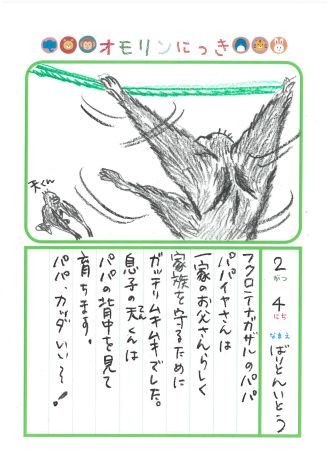 オモリンにっき
天くん
2がつ4にち なまえ ばりとんいとう
フクロテナガザルのパパ
パパイヤさんは
一家のお父さんらしく
家族を守るために
ガッチリムキムキでした。
息子の天(てん)くんは
パパの背中を見て
育ちます。
パパ、カッコいい〜!